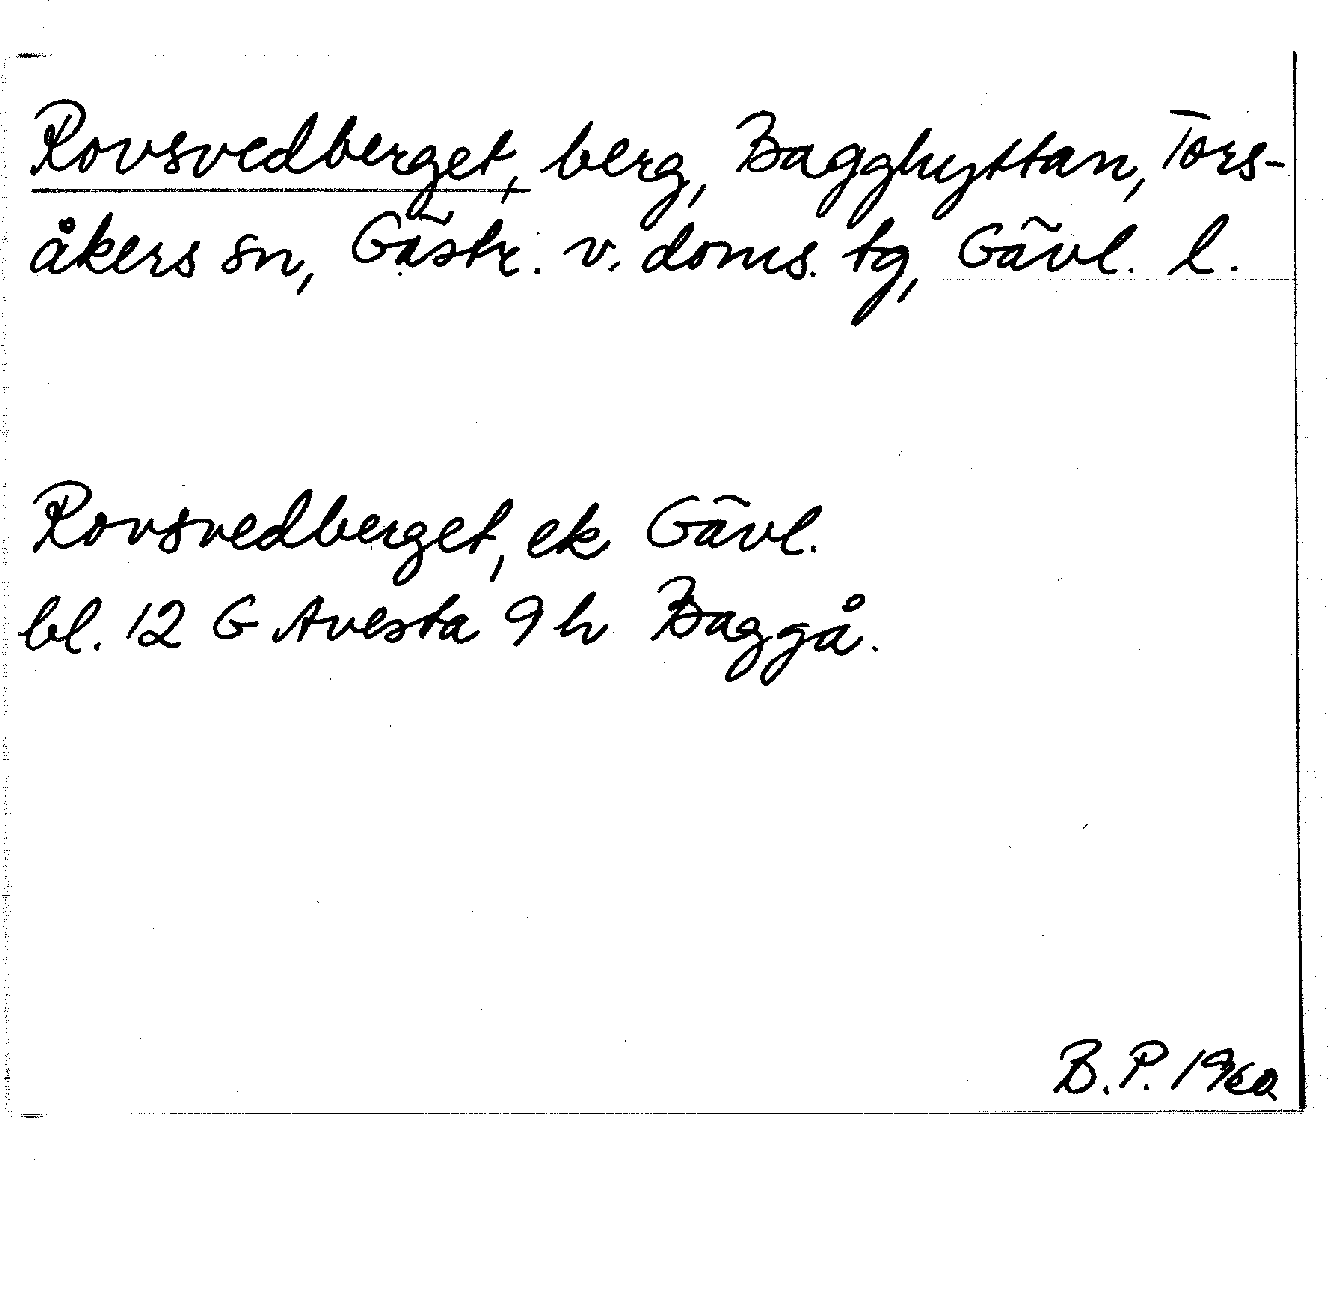 Rovsvedberget, berg, Bagghyttan, Tors-
åkers sn, Gästr. v. doms. tg, Gävl. l.
Rovsvedberget, ek Gävl.
bl. 12 G Avesta 9 h Baggå.
B.P. 1960